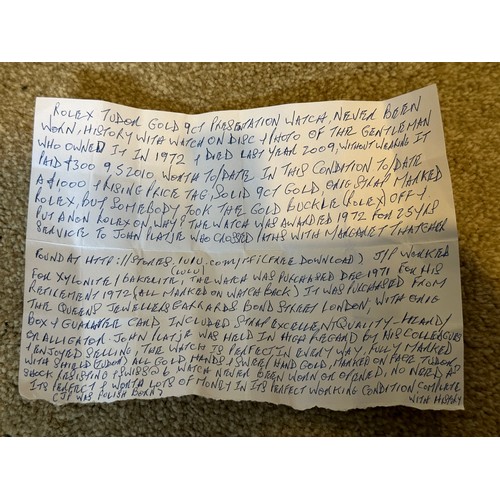 ROLEX TUDOR GOLD 9CT PRESENTATION WATCH, NEVER BEEN
WORN, HISTORY WITH WATCH ON DISC & PHOTO OF THE GENTLEMAN
WHO OWNED IT IN 1972 & DIED LAST YEAR 2009, WITHOUT WEARING IT
PAID £300 9 5 2010, WORTH TO/DATE IN THIS CONDITION TO/DATE
A £1000 & RISING PRICE TAG, SOLID 9CT GOLD, ORIG STRAP MARKED
ROLEX, BUT SOMEBODY TOOK THE GOLD BUCKLE (ROLEX) OFF &
PUT A NON ROLEX ON, WHY? THE WATCH WAS AWARDED 1972 FOR 25 YRS
SERVICE TO JOHN PLATJE WHO CROSSED PATHS WITH MARGARET THATCHER
FOUND AT HTTP://STORES.LULU.COM/ (FREE DOWNLOAD) J/P WORKED
(LULU)
FOR XYLONITE/BAKELITE, THE WATCH WAS PURCHASED DEC 1971 FOR HIS
RETIREMENT 1972 (ALL MARKED ON WATCH BACK) IT WAS PURCHASED FROM
THE QUEENS JEWELLERS GARRARDS BOND STREET LONDON, WITH ORIG
BOX & GUARANTEE CARD INCLUDED STRAP EXCELLENT QUALITY
OR ALLIGATOR. JOHN PLATJE WAS HELD IN HIGH REGARD BY HIS COLLEAGUES
& ENJOYED SELLING, THE WATCH IS PERFECT IN EVERY WAY, FULLY MARKED
WITH SHIELD (TUDOR) ALL GOLD HANDS & SWEEP HAND GOLD, MARKED ON FACE TUDOR
SHOCK RESISTING & SWISS WATCH NEVER BEEN WORN OR OPENED, NO NEED, AS
ITS PERFECT & WORTH LOTS OF MONEY IN ITS PERFECT WORKING CONDITION COMPLETE
(JP WAS POLISH BORN) WITH HISTORY